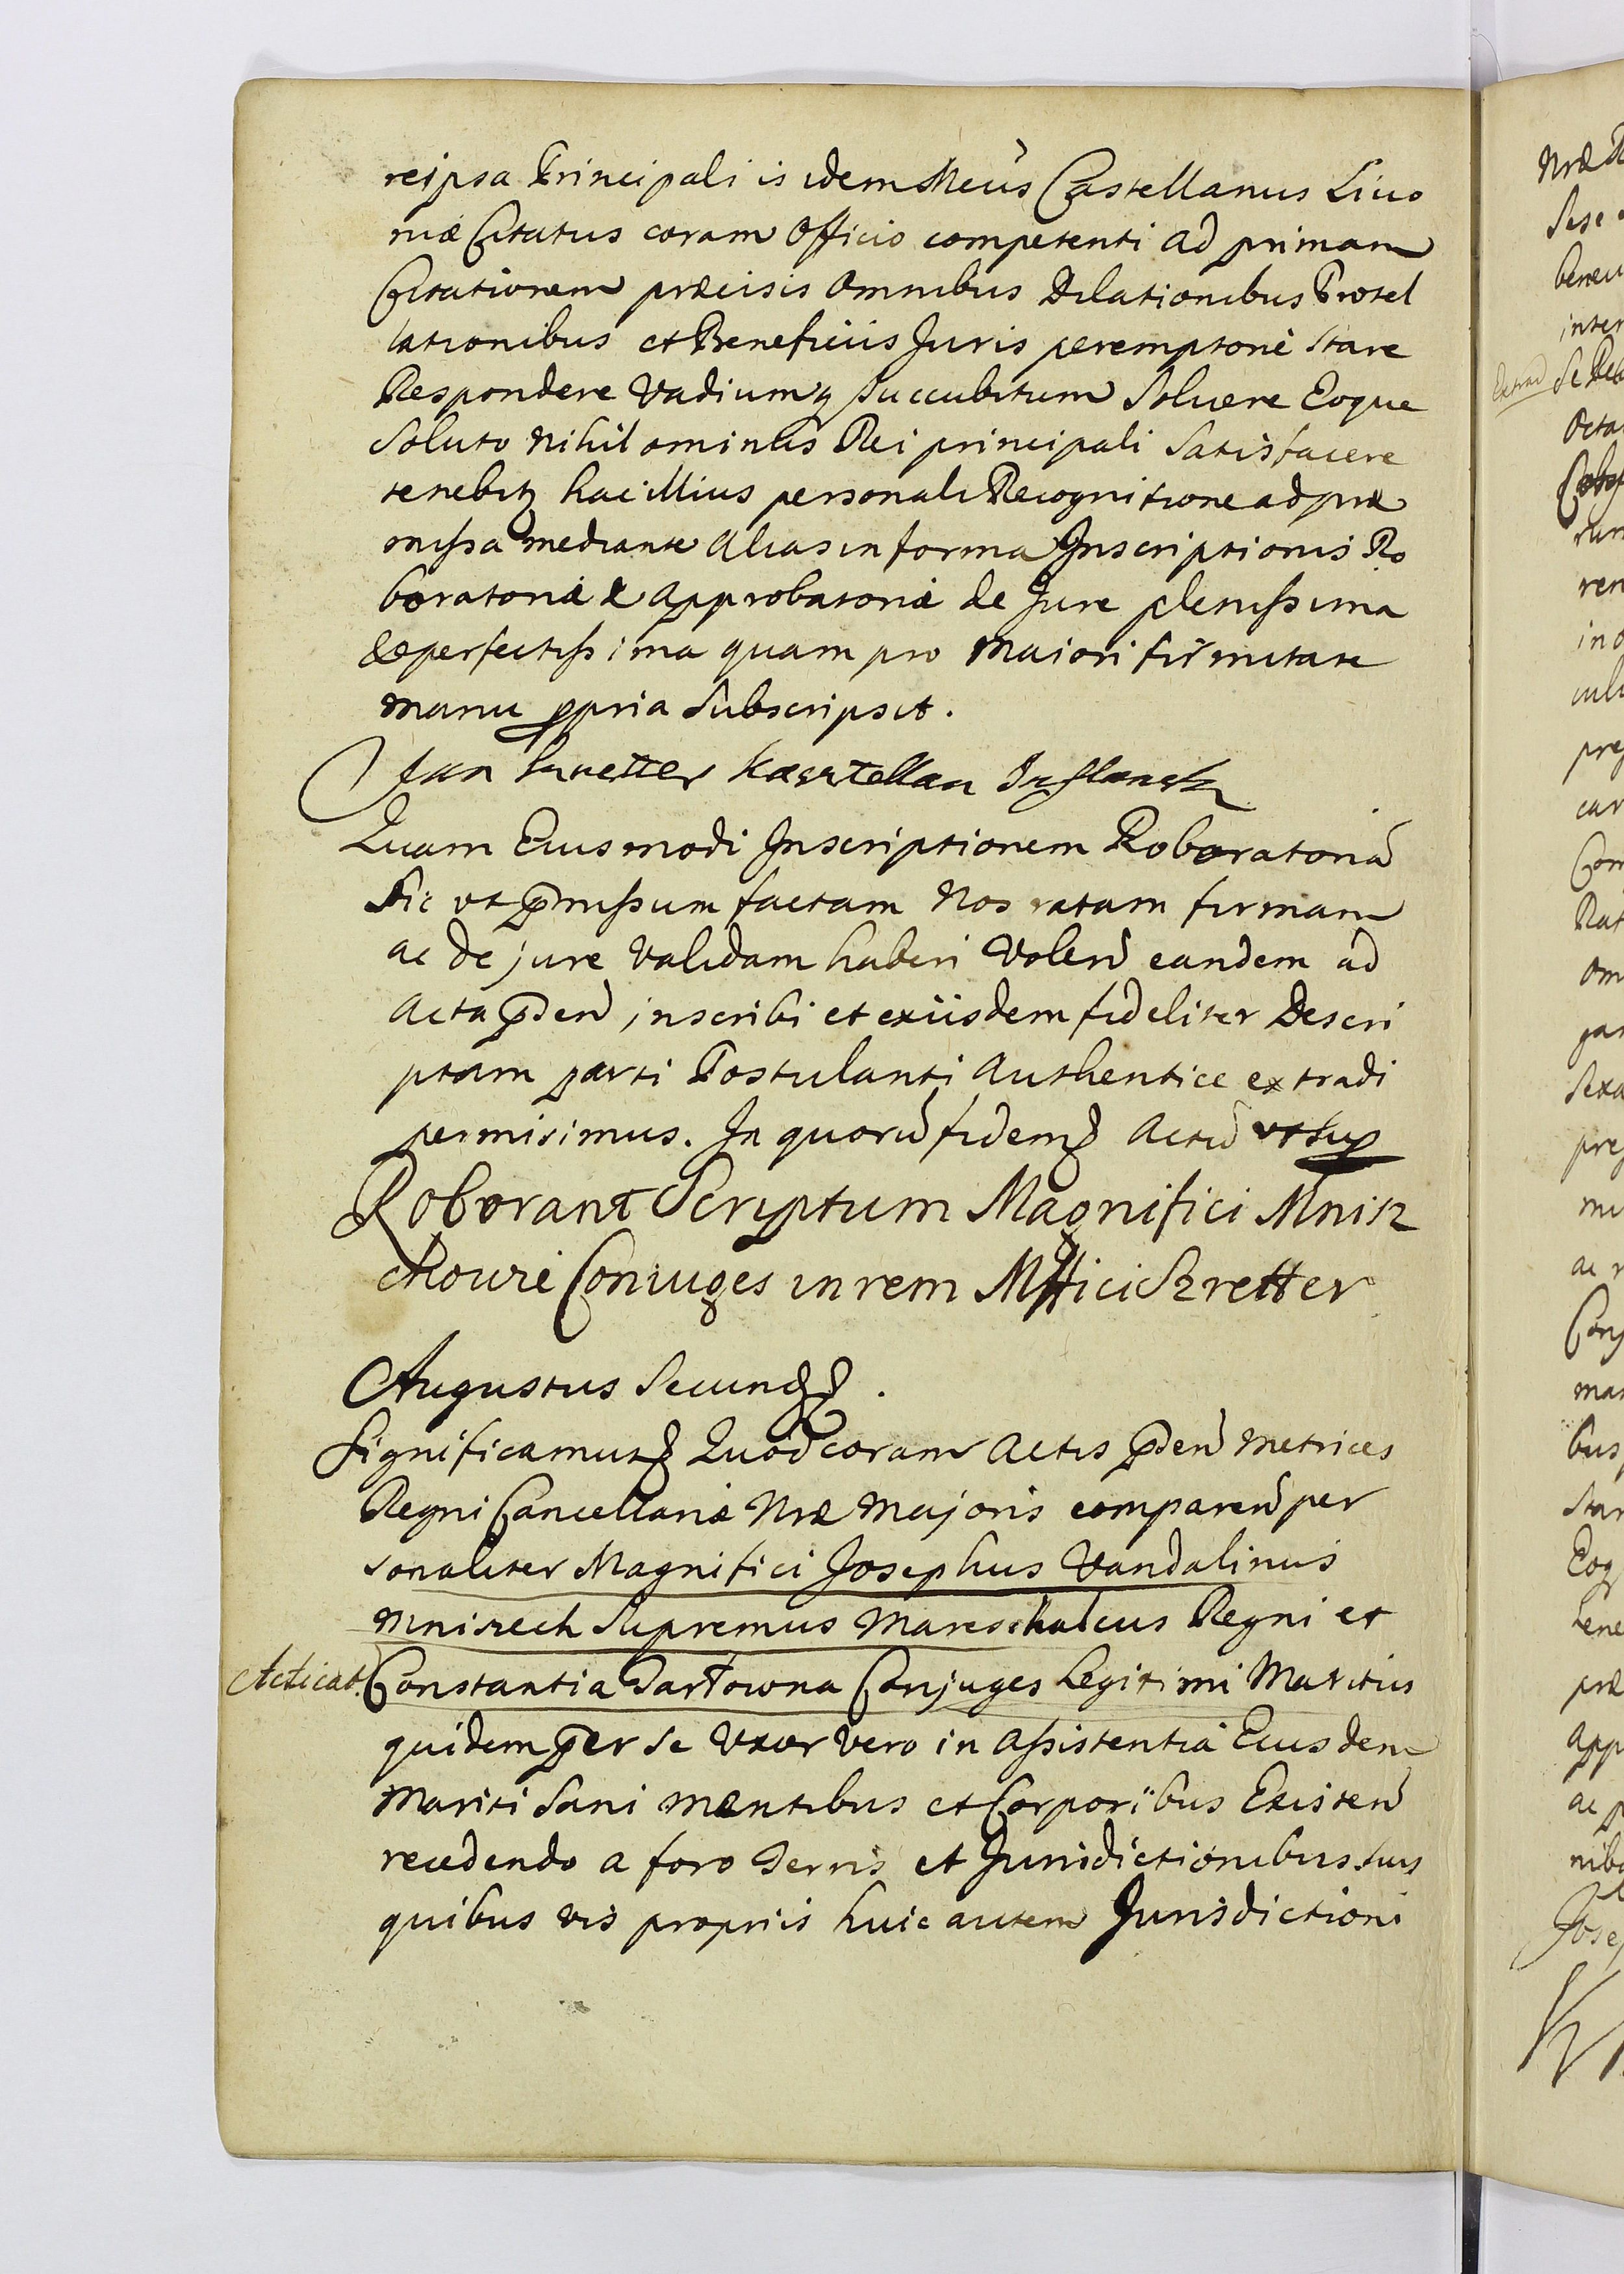 reipsa Principali is idem Mcus Castellanus Livo
niæ Citatus coram Officio competenti ad primam
Citationem præcisis Omnibus Dilationibus Protel
lationibus et Beneficiis Juris peremptorie Stare
Respondere Vadiumq succubitum Solvere Eoque
Soluto Nihilominus Rei principali Satisfacere
tenebitq hac illius personali Recognitione ad præ
missa mediante Alias in forma Inscriptionis Ro
boratoriæ & Approbatoriæ de Jure plenissima
& perfectissima quam pro Maiori firmitate
manu ppria Subscripsit.
Jan Szretter Kasztellan Inflanck
Quam Eiusmodi Inscriptionem Roboratoriã
Sic ut pmissum factam Nos ratam firmam
ac de jure Validam haberi Volen eandem ad
Acta pden inscribi et exiisdem fideliter Descri
ptam parti Postulanti Authentice extradi
permisimus. In quorũ fidem Actũ ut sup
Roborant Scriptum Magnifici Mnisz
chowie Coniuges in rem Mffici Szretter
Augustus Secund.
Significamus Quod coram Actis pden Metrices
Regni Cancellariæ Nræ Majoris comparen per
sonaliter Magnifici Josephus Vandalinus
Mniszech Supremus Mareschalcus Regni et
Acticat. Constantia Tarłowna Conjuges Legitimi Maritus
quidem per se Uxor Vero in Assistentia Eiusdem
Mariti Sani Mentibus et Corporibus Existen
recedendo a foro Terris et Jurisdictionibus suis
quibus vis propriis huic autem Jurisdictioni